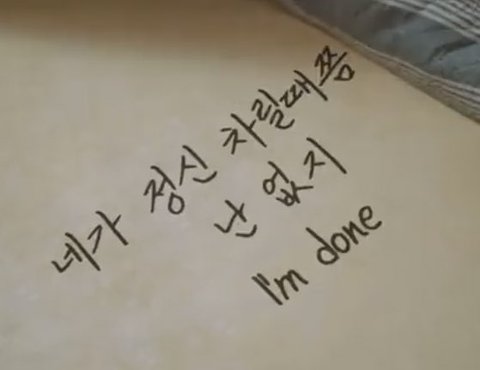 네가 정신 차릴때쯤
난 없지
I'm done